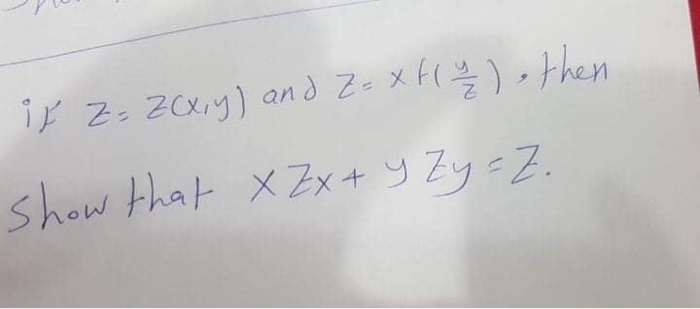 if z = z(x,y) and z = x f(y/z), then
show that x Zx + y Zy = Z.